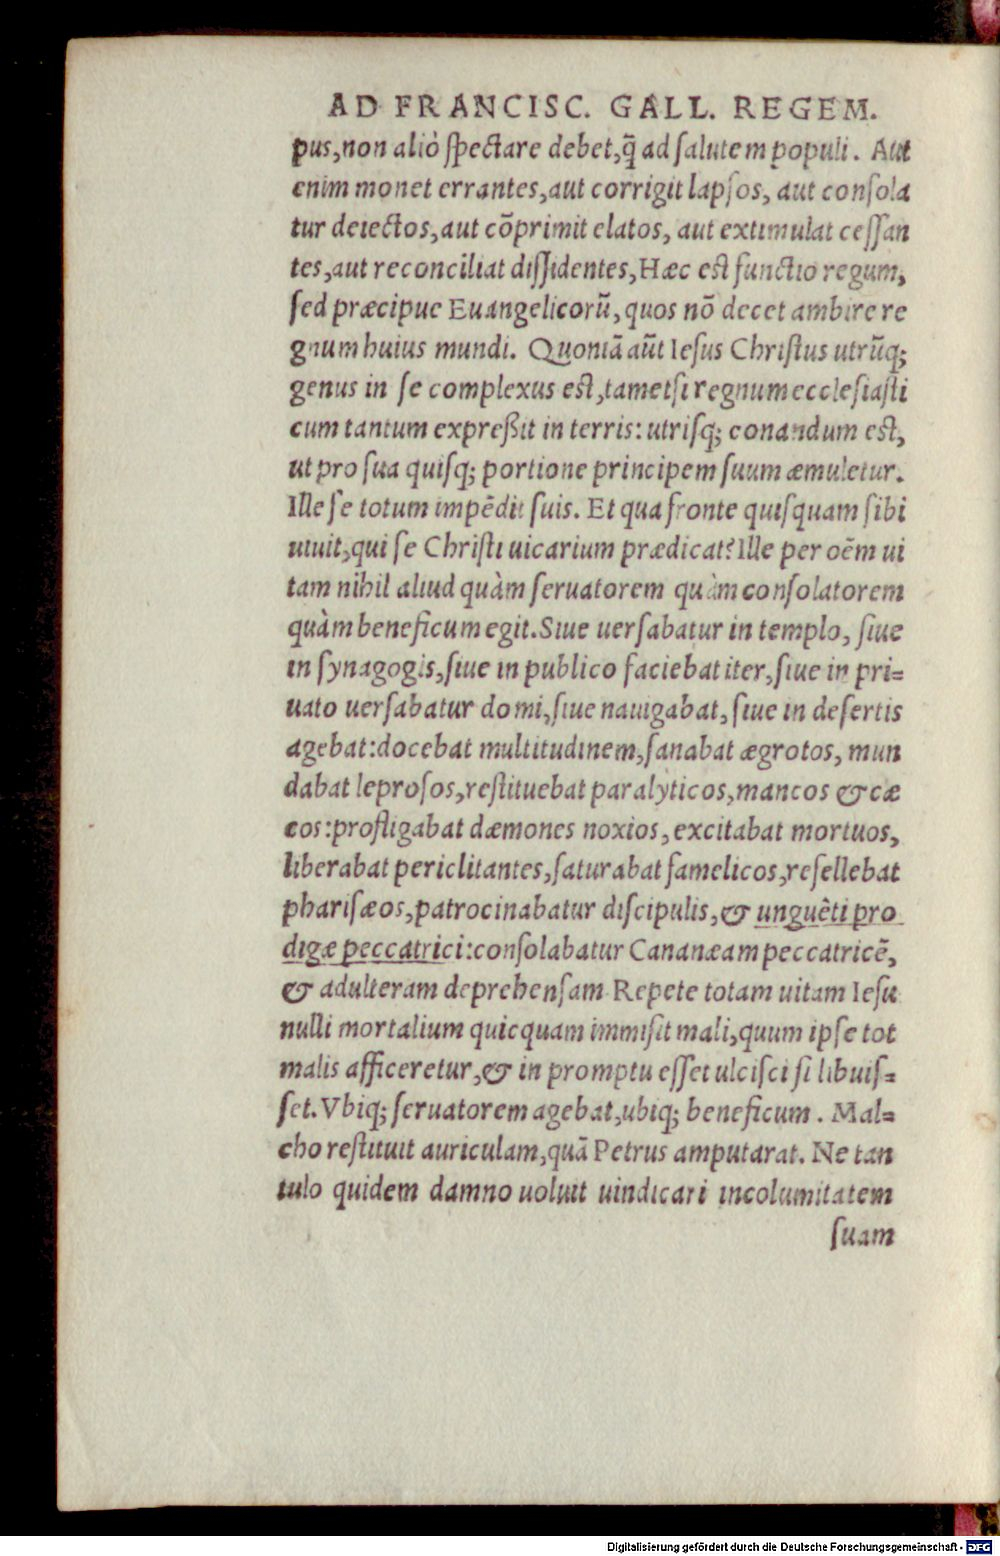 AD FRANCISC. GALL. REGEM.
pus, non aliò spectare debet, q̃ ad salutem populi. Aut
enim monet errantes, aut corrigit lapsos, aut consola
tur deiectos, aut cōprimit elatos, aut extimulat cessan
tes, aut reconciliat dissidentes, Hæc est functio regum,
sed præcipue Euangelicorū, quos nō decet ambire re
gnum huius mundi. Quoniā aūt Iesus Christus utrūq;
genus in se complexus est, tametsi regnum ecclesiasti
cum tantum expreßit in terris: utrisq; conandum est,
ut pro sua quisq; portione principem suum æmuletur.
Ille se totum impēdit suis. Et qua fronte quisquam sibi
uiuit, qui se Christi uicarium prædicat? Ille per oēm ui
tam nihil aliud quàm seruatorem quàm consolatorem
quàm beneficum egit. Siue uersabatur in templo, siue
in synagogis, siue in publico faciebat iter, siue in pri=
uato uersabatur domi, siue nauigabat, siue in desertis
agebat: docebat multitudinem, sanabat ægrotos, mun
dabat leprosos, restituebat paralyticos, mancos & cæ
cos: profligabat dæmones noxios, excitabat mortuos,
liberabat periclitantes, saturabat famelicos, refellebat
pharisæos, patrocinabatur discipulis, & unguēti pro
digæ peccatrici: consolabatur Cananæam peccatricē,
& adulteram deprehensam Repete totam uitam Iesu
nulli mortalium quicquam immisit mali, quum ipse tot
malis afficeretur, & in promptu esset ulcisci si libuis=
set. Vbiq; seruatorem agebat, ubiq; beneficum. Mal=
cho restituit auriculam, quā Petrus amputarat. Ne tan
tulo quidem damno uoluit uindicari incolumitatem
suam
Digitalisierung gefördert durch die Deutsche Forschungsgemeinschaft - DFG